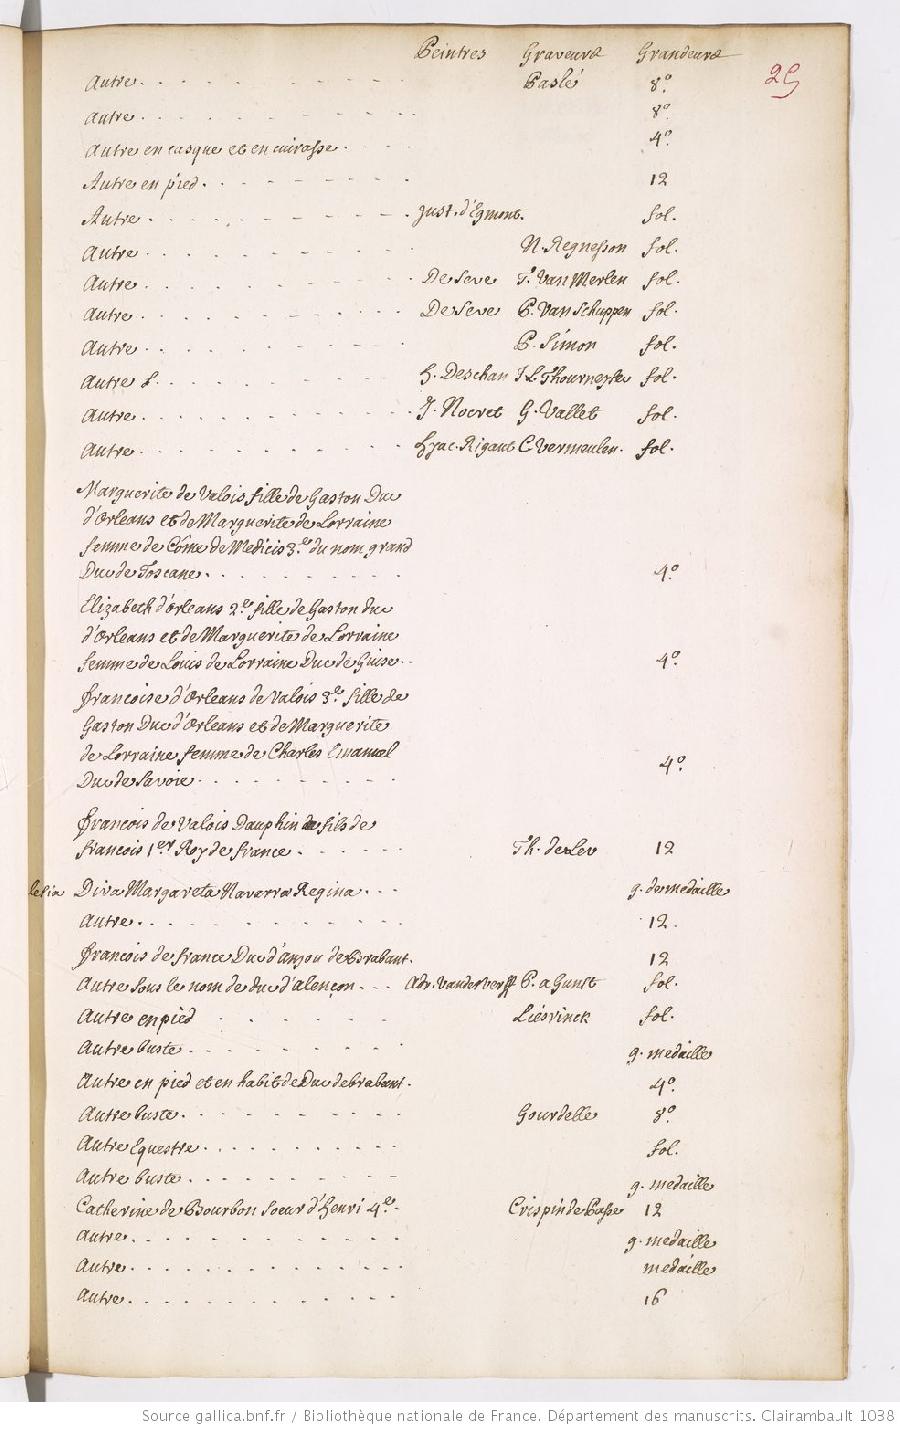 Peintres Graveurs Grandeurs
25
Autre. Baslé 8°.
Autre. 8°
Autre en casque et en cuirasse. 4°.
Autre en pied. 12
Autre. Just. d'Egmont. fol.
Autre N. Regnesson fol.
Autre. De Seve T. Van Merlen fol.
Autre. De Seve P. Van Schuppen fol.
Autre. P. Simon fol.
Autre f. H. Deschan J. L. Thourneysse fol.
Autre. J. Nocret G. Vallet fol.
Autre. Hyac. Rigaut C. Vermeulen. fol.
Marguerite de Valois fille de Gaston Duc
d'Orleans et de Marguerite de Lorraine
femme de Côme de Medicis 3.e du nom grand
Duc de Toscane. 4°
Elizabeth d'Orleans 2.e fille de Gaston duc
d'Orleans et de Marguerite de Lorraine
femme de Louis de Lorraine Duc de Guise. 4°.
françoise d'Orleans de Valois 3.e fille de
Gaston Duc d'Orleans et de Marguerite
de Lorraine femme de Charles Emanuel
Duc de Savoie. 4°.
françois de Valois Dauphin fils de
francois 1.er Roy de france. Th. de Leu 12
Diva Margareta Navarra Regina. g. de medaille
Autre. 12.
françois de france Duc d'anjou de Brabant. 12
Autre sous le nom de duc d'alençon. Adr. Vanderwerff P. a Gunst fol.
Autre en pied Liésvinck fol.
Autre buste. g. medaille
Autre en pied et en habit de Duc de brabant. 4°.
Autre buste. Gourdelle 8°
Autre Equestre. fol.
Autre buste. g. medaille
Catherine de Bourbon soeur d'henri 4.e Crispin de Passe 12
Autre. g. medaille
Autre. medaille
Autre. 16
Source gallica.bnf.fr / Bibliothèque nationale de France. Département des manuscrits. Clairambault 1038